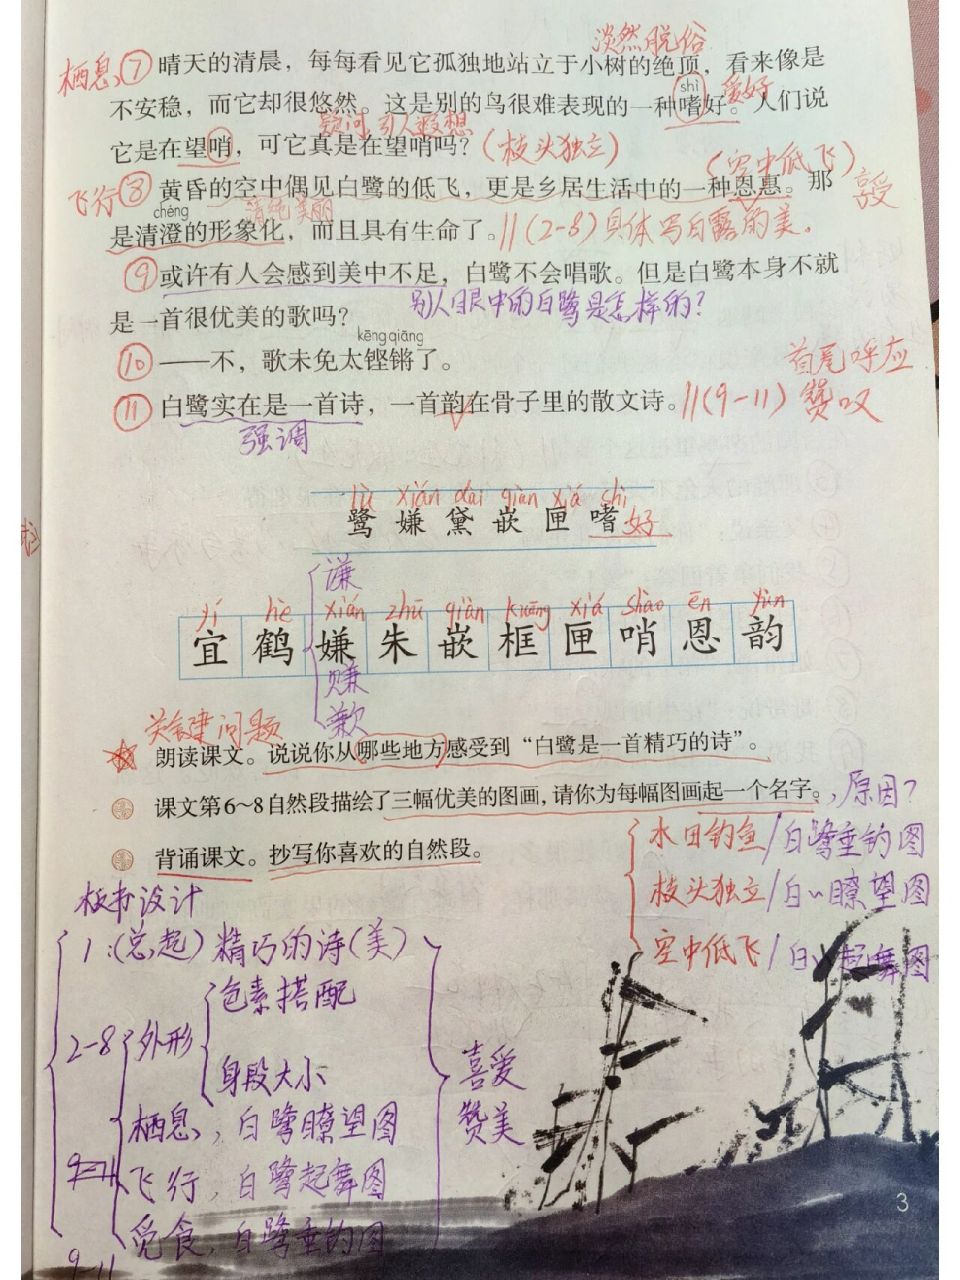 淡然脱俗
栖息、⑦晴天的清晨，每每看见它孤独地站立于小树的绝顶，看来像是
shì 爱好
不安稳，而它却很悠然。这是别的鸟很难表现的一种嗜好。人们说
疑问 引人遐想
它是在望哨，可它真是在望哨吗？(枝头独立)
(空中低飞)
飞行⑧黄昏的空中偶见白鹭的低飞，更是乡居生活中的一种恩惠。那 享受
chéng 清纯美丽
是清澄的形象化，而且具有生命了。∥(2-8)具体写白露的美.
⑨或许有人会感到美中不足，白鹭不会唱歌。但是白鹭本身不就
别人眼中的白鹭是怎样的？
是一首很优美的歌吗？
kēng qiāng
⑩——不，歌未免太铿锵了。
首尾呼应
⑪白鹭实在是一首诗，一首韵在骨子里的散文诗。∥(9-11) 赞叹
强调
lù xián dài qiàn xiá shì
鹭 嫌 黛 嵌 匣 嗜好
谦
yí hè xián zhū qiàn kuàng xiá shào ēn yùn
宜 鹤 嫌 朱 嵌 框 匣 哨 恩 韵
赚
歉
关键问题
朗读课文。说说你从哪些地方感受到“白鹭是一首精巧的诗”。
课文第6~8自然段描绘了三幅优美的图画，请你为每幅图画起一个名字。，原因？
水田钓鱼/白鹭垂钓图
背诵课文。抄写你喜欢的自然段。
枝头独立/白〃瞭望图
空中低飞/白〃起舞图
板书设计
1:(总起) 精巧的诗(美)
色素搭配
2-8 外形
身段大小
喜爱
赞美
栖息，白鹭瞭望图
9-11 飞行，白鹭起舞图
觅食，白鹭垂钓图
9-11
3